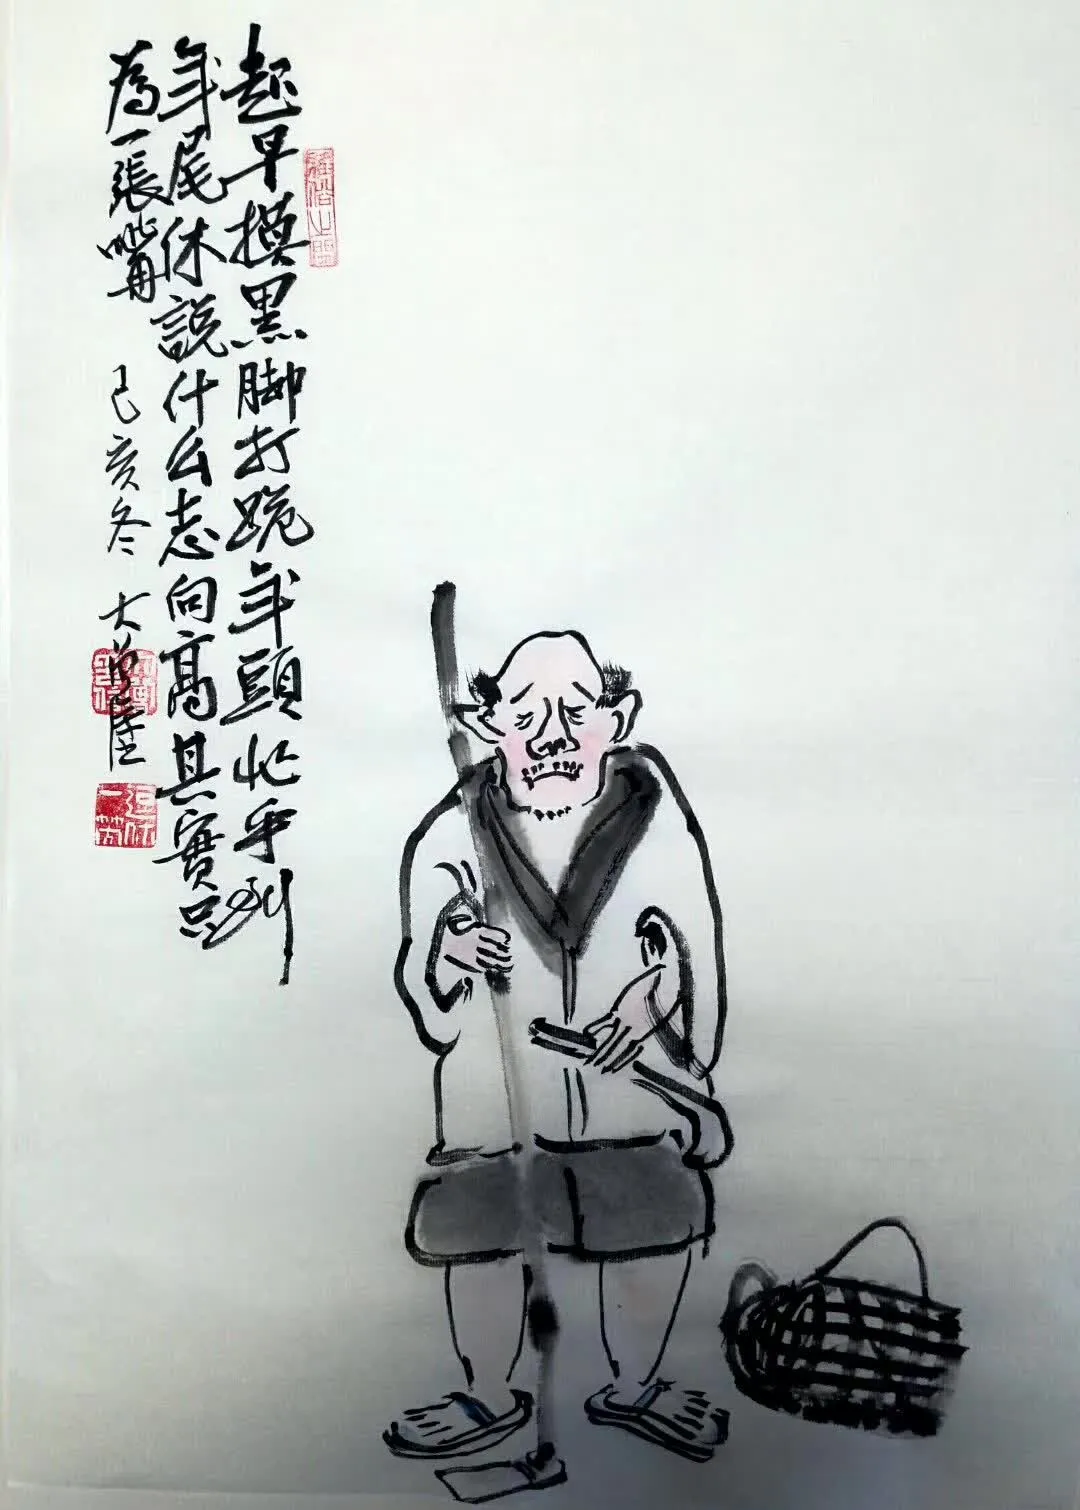 雅俗之間
起早摸黑脚打跪年頭忙乎到
年尾休説什么志向高其實只
為一張嘴
己亥冬